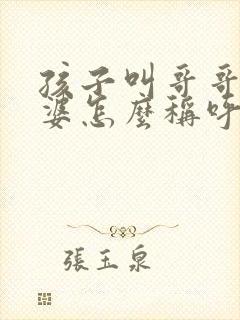 孩子叫哥哥
婆怎麼稱呼
張玉泉